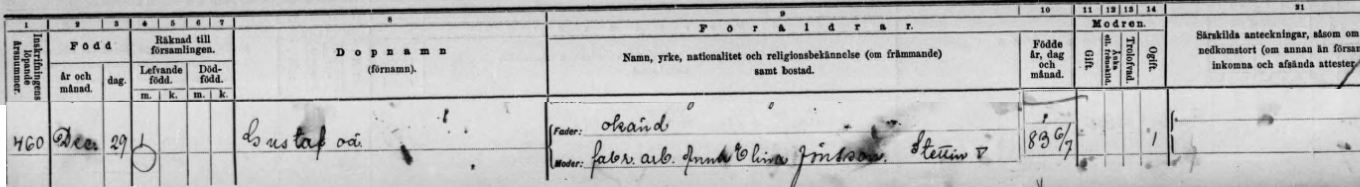 1 2 3 4 5 6 7 8 9 10 11 12 13 14 21
Inskrifningens löpande årsnummer.
Född
År och månad.
dag.
Räknad till församlingen.
Lefvande född.
Död-född.
m. k. m. k.
Dopnamn
(förnamn).
Föräldrar.
Namn, yrke, nationalitet och religionsbekännelse (om främmande)
samt bostad.
Födde år, dag och månad.
Modren.
Gift.
Änka ell. frånskild.
Trolofvad.
Ogift.
Särskilda anteckningar, såsom om
nedkomstort (om annan än försam
inkomna och afsända attester
460 Dec. 29 Gustaf oä.
Fader: okänd
Moder: fabr. arb. Anna Elina Jönsson. Stettin V 83 6/7 1